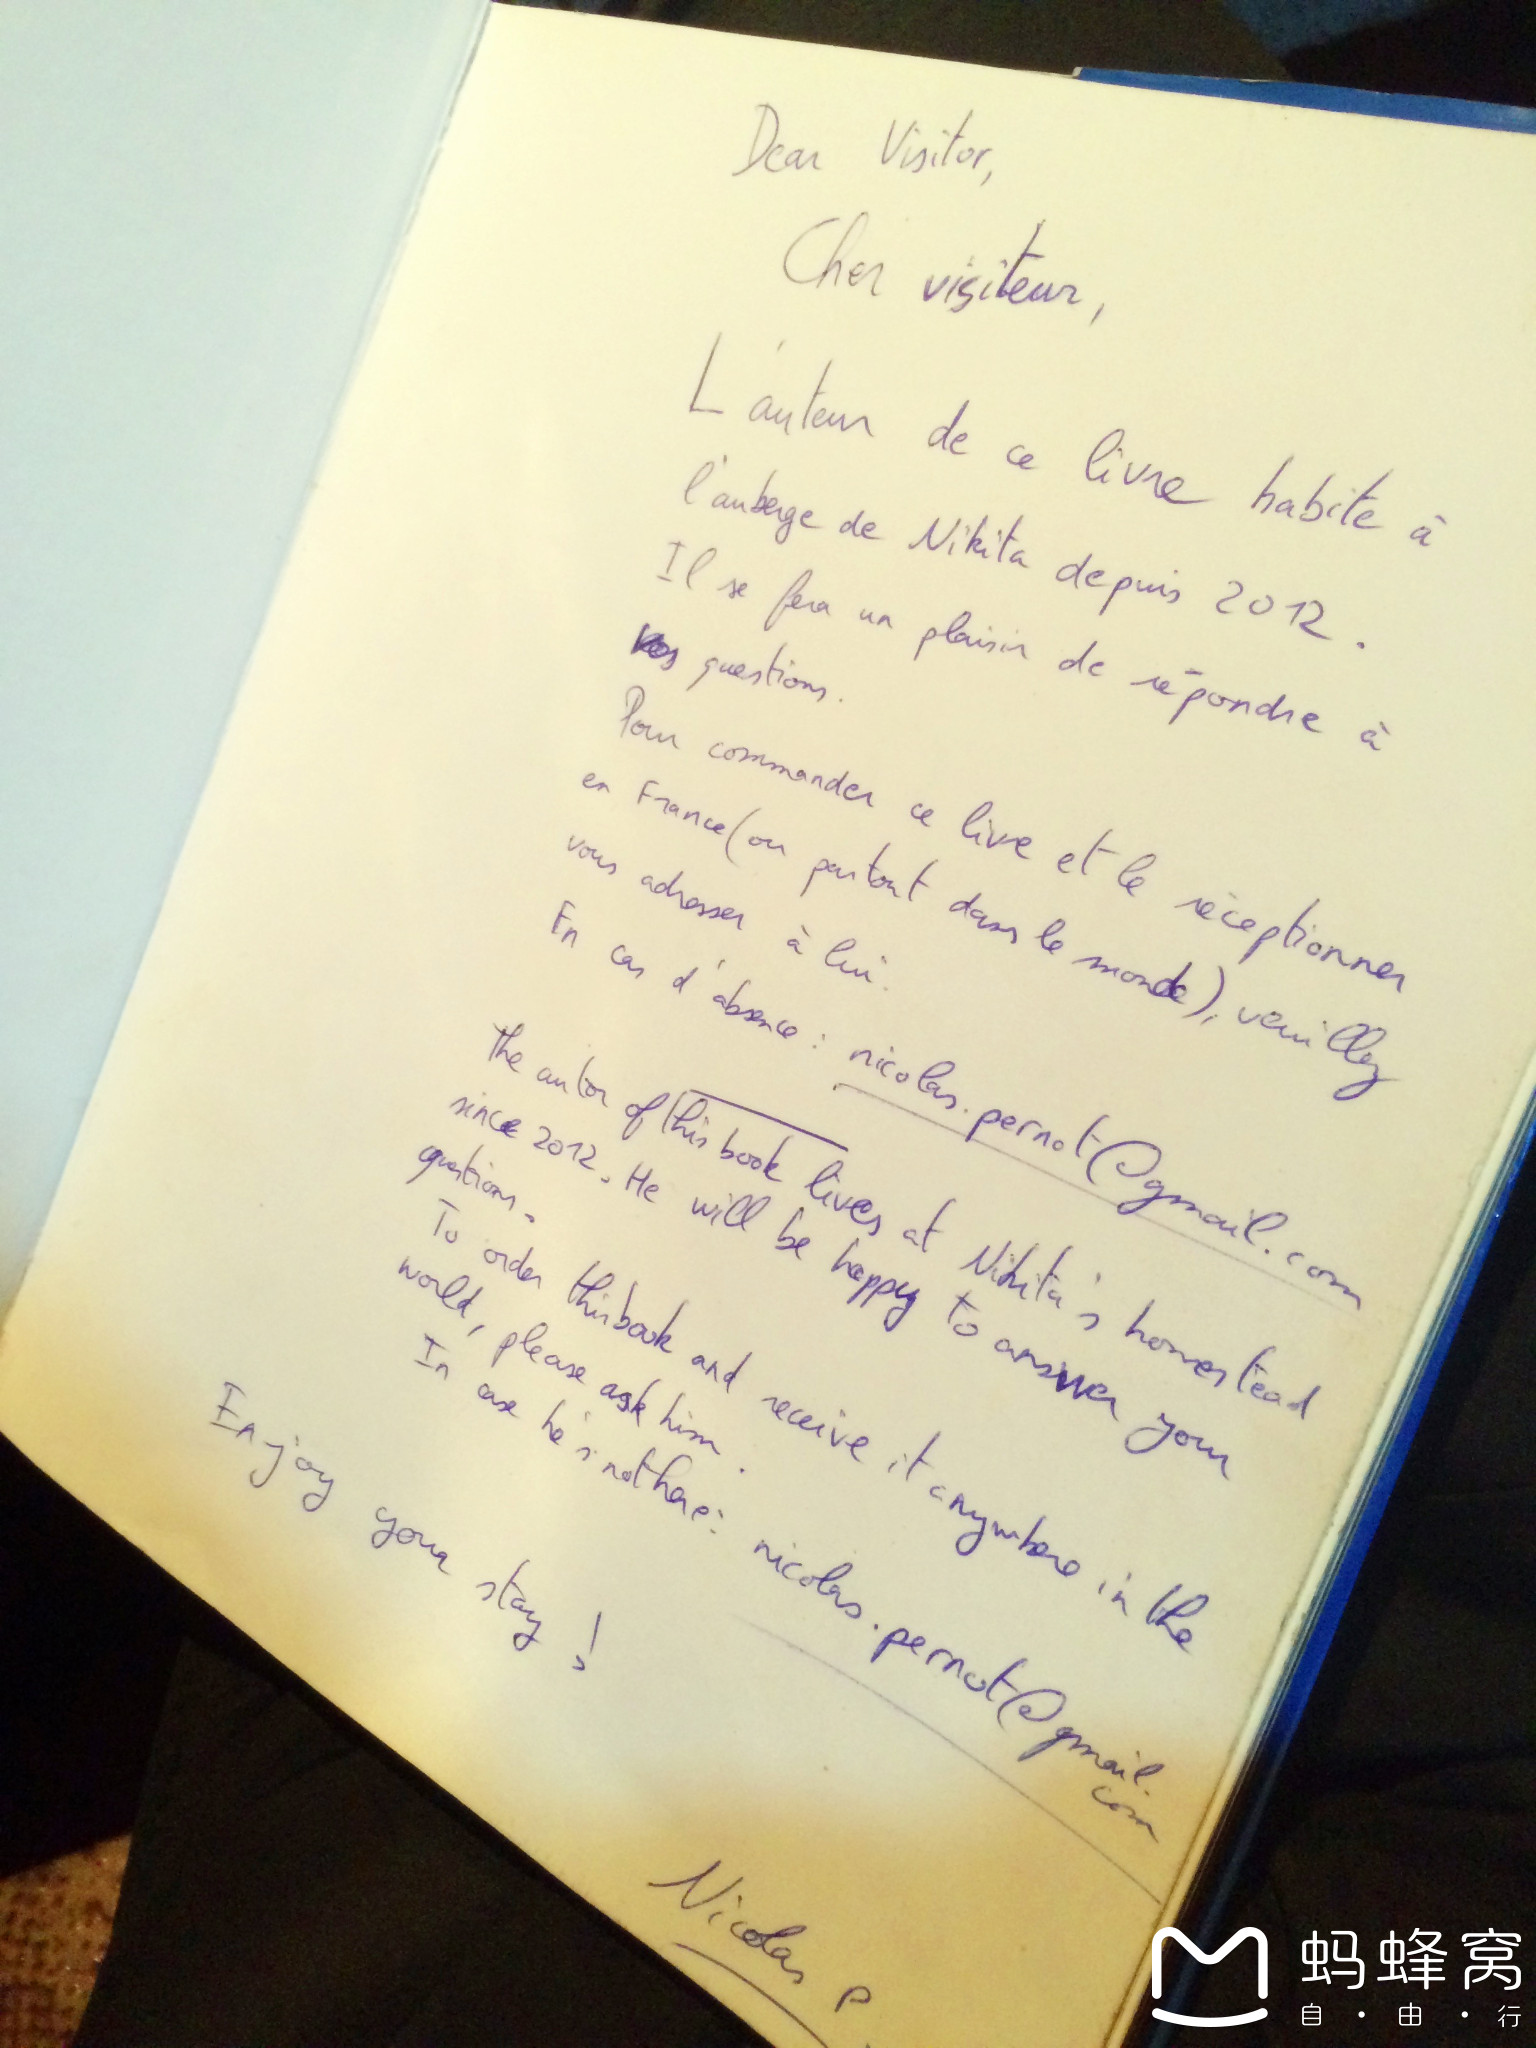 Dear Visitor,
Cher visiteur,
L'auteur de ce livre habite à
l'auberge de Nikita depuis 2012.
Il se fera un plaisir de répondre à
vos questions.
Pour commander ce livre et le réceptionner
en France (ou partout dans le monde), veuillez
vous adresser à lui.
En cas d'absence : nicolas.pernot@gmail.com
The autor of this book lives at Nikita's homestead
since 2012. He will be happy to answer your
questions.
To order this book and receive it anywhere in the
world, please ask him.
In case he's not here: nicolas.pernot@gmail.
com
Enjoy your stay !
Nicolas P.
蚂蜂窝
自·由·行